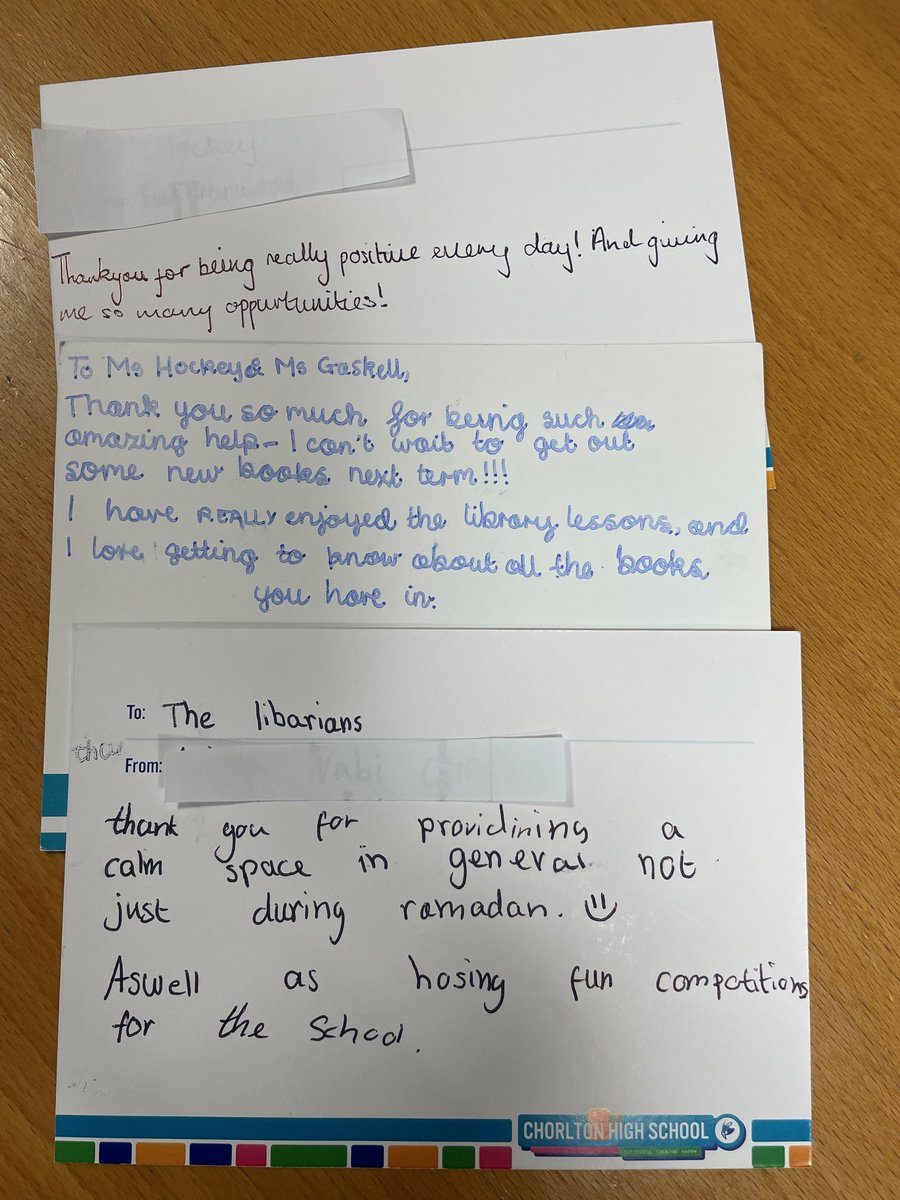 Hockey
Thankyou for being really positive every day! And giving
me so many oppurtunities!
To Ms Hockey & Ms Gaskell,
Thank you so much for being such
amazing help - I can't wait to get out
some new books next term!!!
I have REALLY enjoyed the library lessons, and
I love getting to know about all the books
you have in.
To: The libarians
From:
thank you for providining a
calm space in general not
just during ramadan.
Aswell as hosing fun compotitions
for the school.
CHORLTON HIGH SCHOOL
SUCCESSFUL CREATIVE HAPPY